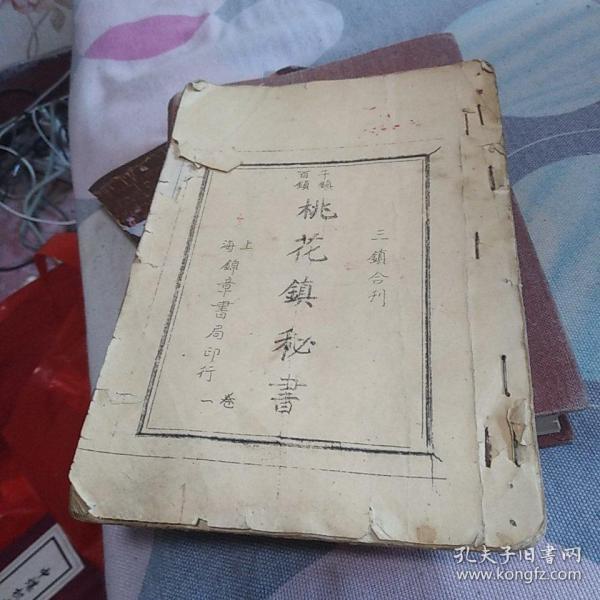 三鎮合刊
千鎮
百鎮
桃花鎮秘書
上海錦章書局印行
卷一
孔夫子旧书网
www.kongfz.com